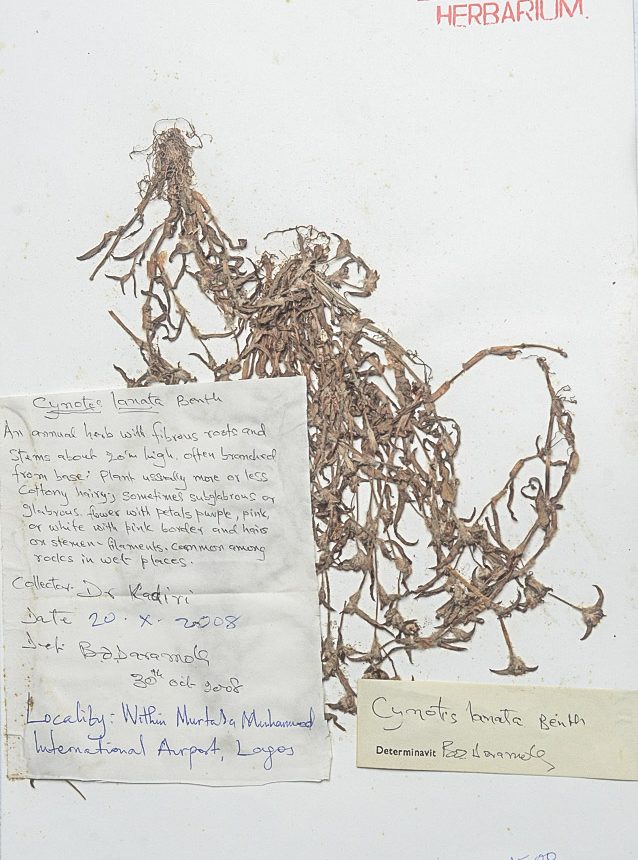 HERBARIUM.
Cynotis lanata Benth
An annual herb with fibrous roots and
stems about 20in high, often branched
from base; Plant usually more or less
Cottony hairy; sometimes subglabrous or
glabrous. flower with petals purple, pink,
or white with pink border and hairs
on stemen filaments. Common among
rocks in wet places.
Collector. Dr Kadiri
Date 20. X. 2008
Det: B.O. Daramola
30th oct 2008
Locality: Within Murtala Muhammed
International Airport, Lagos
Cynotis lanata Benth
Determinavit B.O. Daramola